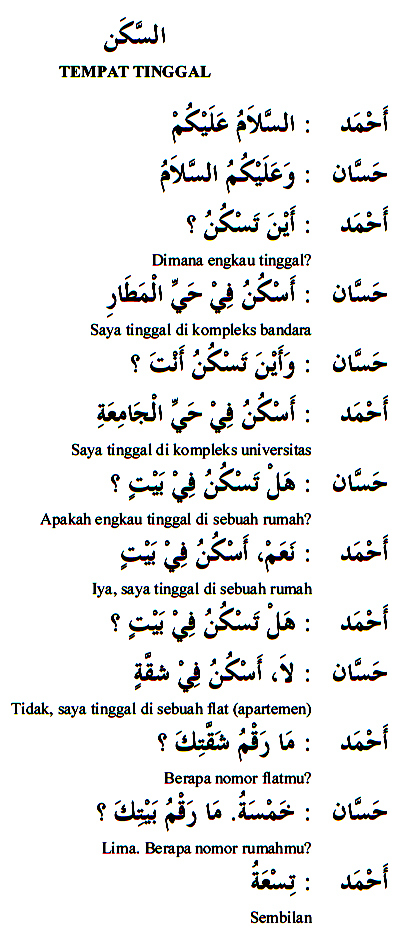 السَّكَن
TEMPAT TINGGAL
أَحْمَد : السَّلاَمُ عَلَيْكُمْ
حَسَّان : وَعَلَيْكُمُ السَّلاَمُ
أَحْمَد : أَيْنَ تَسْكُنُ ؟
Dimana engkau tinggal?
حَسَّان : أَسْكُنُ فِيْ حَيِّ الْمَطَارِ
Saya tinggal di kompleks bandara
حَسَّان : وَأَيْنَ تَسْكُنُ أَنْتَ ؟
أَحْمَد : أَسْكُنُ فِيْ حَيِّ الْجَامِعَةِ
Saya tinggal di kompleks universitas
حَسَّان : هَلْ تَسْكُنُ فِيْ بَيْتٍ ؟
Apakah engkau tinggal di sebuah rumah?
أَحْمَد : نَعَمْ، أَسْكُنُ فِيْ بَيْتٍ
Iya, saya tinggal di sebuah rumah
أَحْمَد : هَلْ تَسْكُنُ فِيْ بَيْتٍ ؟
حَسَّان : لاَ، أَسْكُنُ فِيْ شقَّةٍ
Tidak, saya tinggal di sebuah flat (apartemen)
أَحْمَد : مَا رَقْمُ شَقَّتِكَ ؟
Berapa nomor flatmu?
حَسَّان : خَمْسَةُ. مَا رَقْمُ بَيْتِكَ ؟
Lima. Berapa nomor rumahmu?
أَحْمَد : تِسْعَةُ
Sembilan